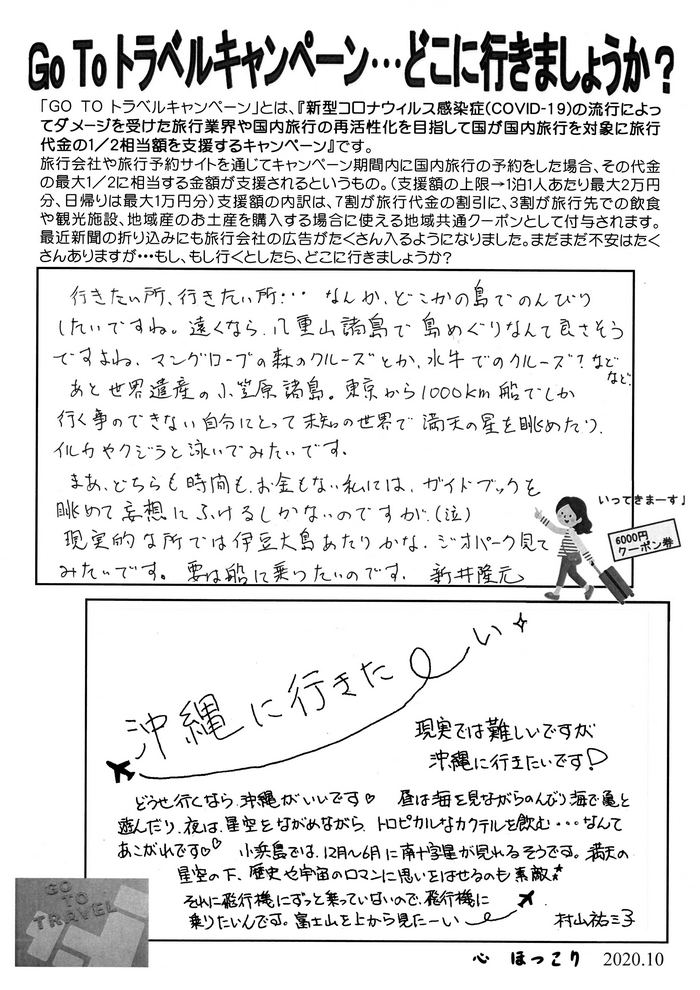 Go To トラベルキャンペーン…どこに行きましょうか？
「GO TO トラベルキャンペーン」とは、『新型コロナウィルス感染症(COVID-19)の流行によっ
てダメージを受けた旅行業界や国内旅行の再活性化を目指して国が国内旅行を対象に旅行
代金の1／2相当額を支援するキャンペーン』です。
旅行会社や旅行予約サイトを通じてキャンペーン期間内に国内旅行の予約をした場合、その代金
の最大1／2に相当する金額が支援されるというもの。（支援額の上限→1泊1人あたり最大2万円
分、日帰りは最大1万円分）支援額の内訳は、7割が旅行代金の割引に、3割が旅行先での飲食
や観光施設、地域産のお土産を購入する場合に使える地域共通クーポンとして付与されます。
最近新聞の折り込みにも旅行会社の広告がたくさん入るようになりました。まだまだ不安はたく
さんありますが・・・もし、もし行くとしたら、どこに行きましょうか？
行きたい所、行きたい所・・・ なんか、どこかの島でのんびり
したいですね。遠くなら、八重山諸島で島めぐりなんて良さそう
ですよね、マングローブの森のクルーズとか、水牛でのクルーズ？など
など。
あと世界遺産の小笠原諸島。東京から1000km船でしか
行く事のできない自分にとって未知の世界で満天の星を眺めたり、
イルカやクジラと泳いでみたいです。
まあ、どちらも時間も、お金もない私には、ガイドブックを
眺めて妄想にふけるしかないのですが、（泣）
現実的な所では伊豆大島あたりかな、ジオパーク見て
みたいです。要は船に乗りたいのです。 新井隆元
いってきまーす♪
6000円
クーポン券
沖縄に行きたーい
現実では難しいですが
沖縄に行きたいです！
どうせ行くなら、沖縄がいいです♡ 昼は海を見ながらのんびり海で亀と
遊んだり、夜は、星空をながめながら、トロピカルなカクテルを飲む・・・なんて
あこがれです♡♡ 小浜島では、12月〜6月に南十字星が見れるそうです。満天の
星空の下、歴史や宇宙のロマンに思いをはせるのも素敵☆
それに飛行機にずっと乗っていないので、飛行機に
乗りたいんです。富士山を上から見たーい
村山祐三子
GO
TO
TRAVEL
心 ほっこり 2020.10